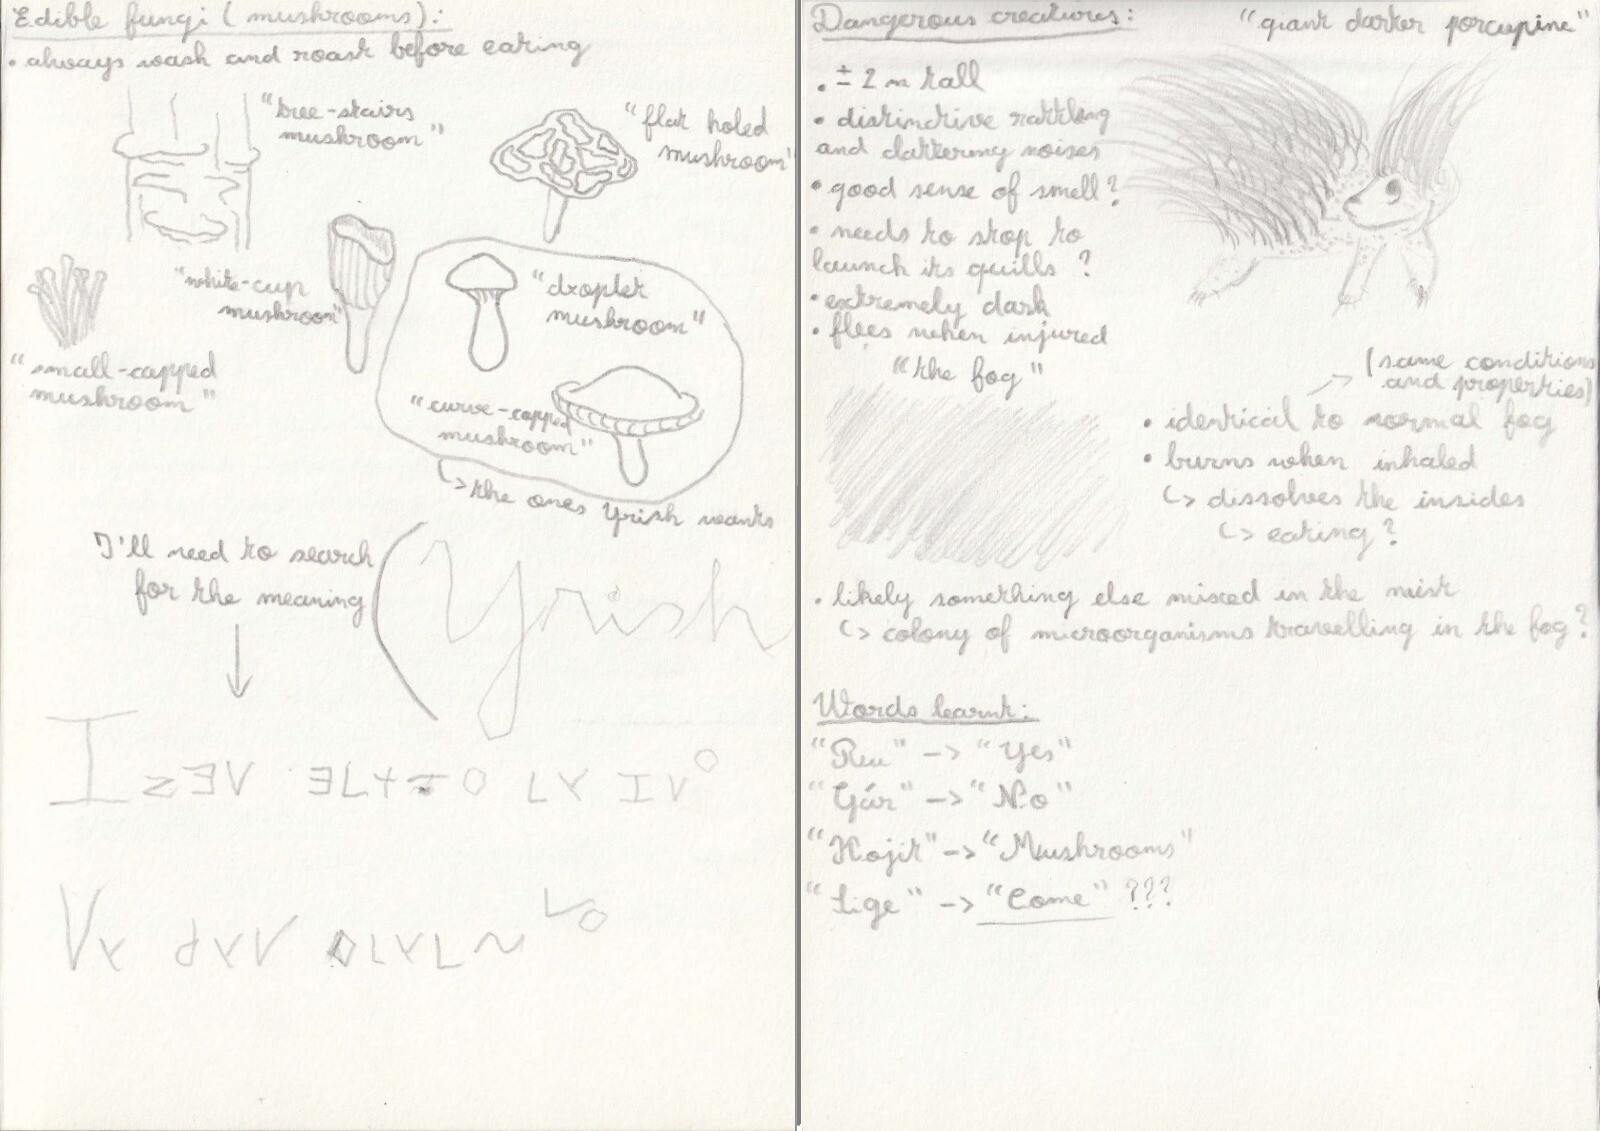 Edible fungi (mushrooms):
• always wash and roast before eating
"tree-stairs
mushroom"
"flat holed
mushroom"
"white-cup
mushroom"
"small-capped
mushroom"
"droplet
mushroom"
"curve-capped
mushroom"
↳ the ones Yrish wants
I'll need to search
for the meaning
Yrish
Dangerous creatures:
"giant darker porcupine"
• ± 2 m tall
• distinctive rattling
and clattering noises
• good sense of smell?
• needs to stop to
launch its quills ?
• extremely dark
• flees when injured
"the fog"
(same conditions
and properties)
• identical to normal fog
• burns when inhaled
↳ dissolves the insides
↳ eating?
• likely something else mixed in the mist
↳ colony of microorganisms travelling in the fog?
Words learnt:
"Reu" -> "Yes"
"Gár" -> "No"
"Hojit" -> "Mushrooms"
-> "Come" ???